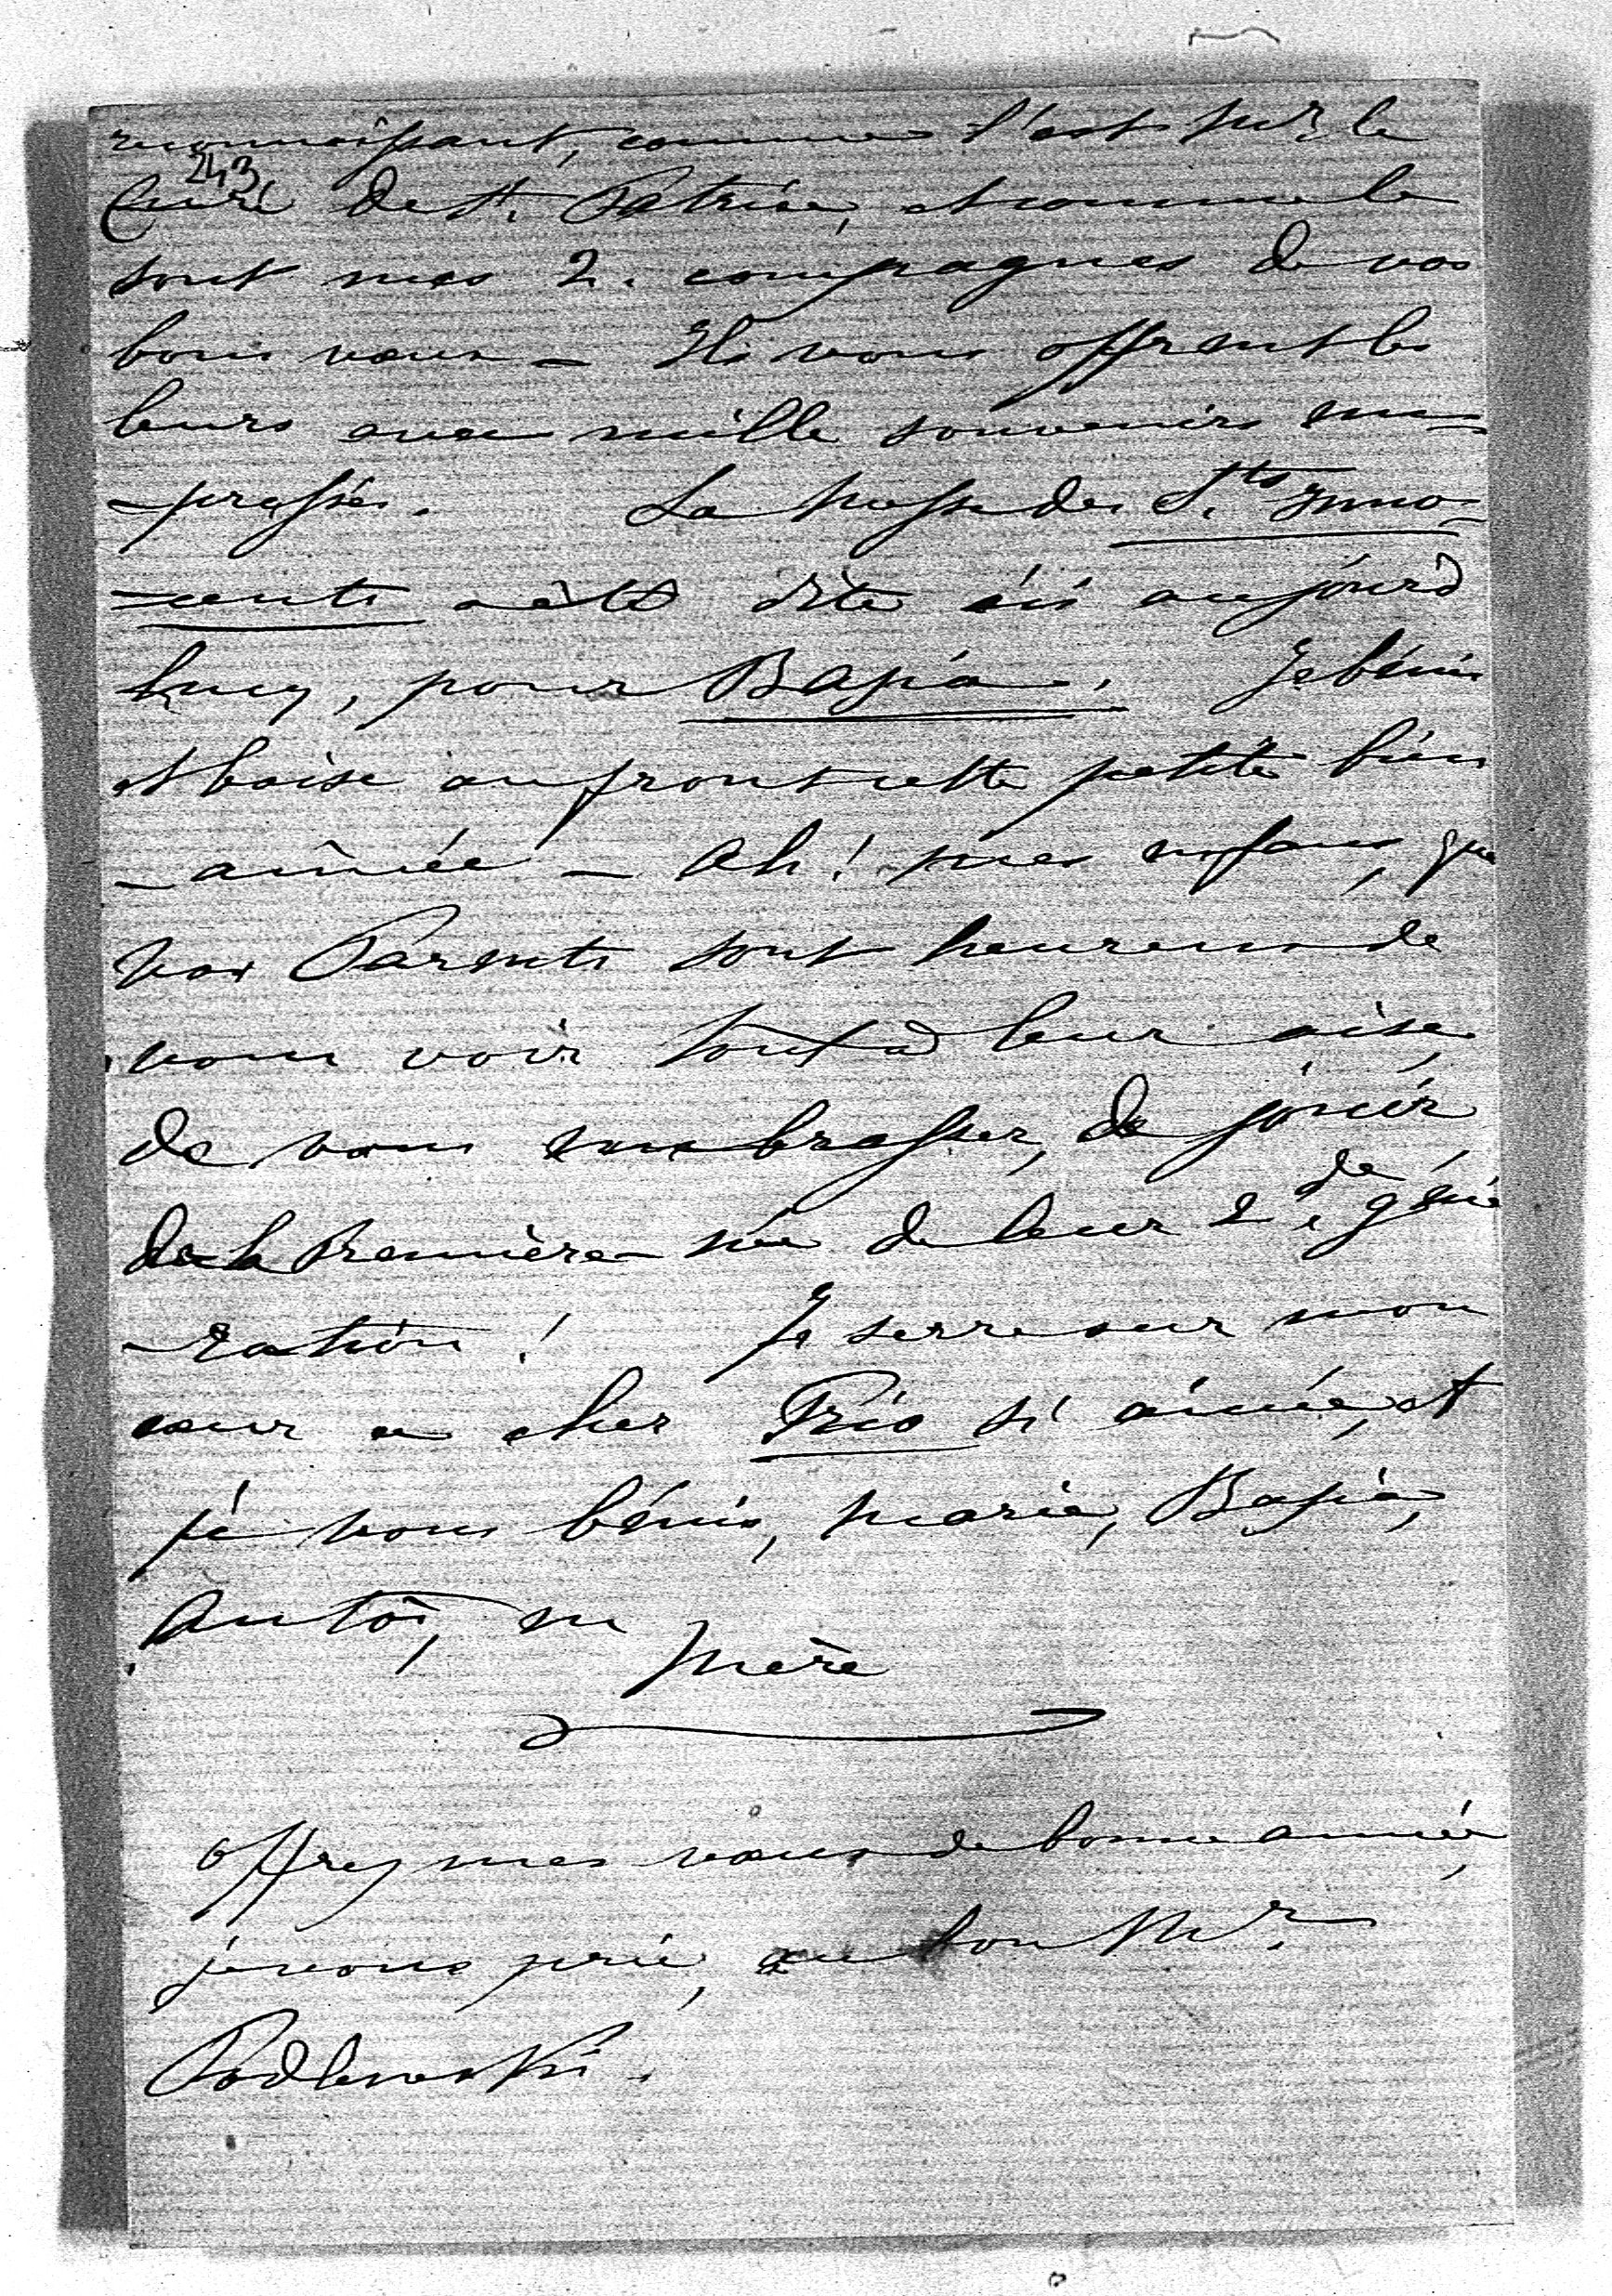 reconnoissant, comme l'est Mr. le
243
Curé de St. Patrice, et comme le
sont mes 2. compagnes de vos
bons vœux — Ils vous offrent les
leurs avec mille souvenirs em-
-pressés. La Messe des Sts. Inno-
-cents a été dite ici aujourd
huy, pour Bapia. Je bénis
et baise au front cette petite bien
-aimée — Ah! mes enfans, que
vos Parents sont heureux de
vous voir tout à leur aise,
de vous embrasser, de jouir
de la Première née de leur 2de. géné
-ration! Je serre sur mon
cœur ce cher Trio si aimé, et
je vous bénis, Marie, Bapia,
Antoi,
Mère
offrez mes vœux de bonne année,
je vous prie, au bon Mr.
Podlewski.